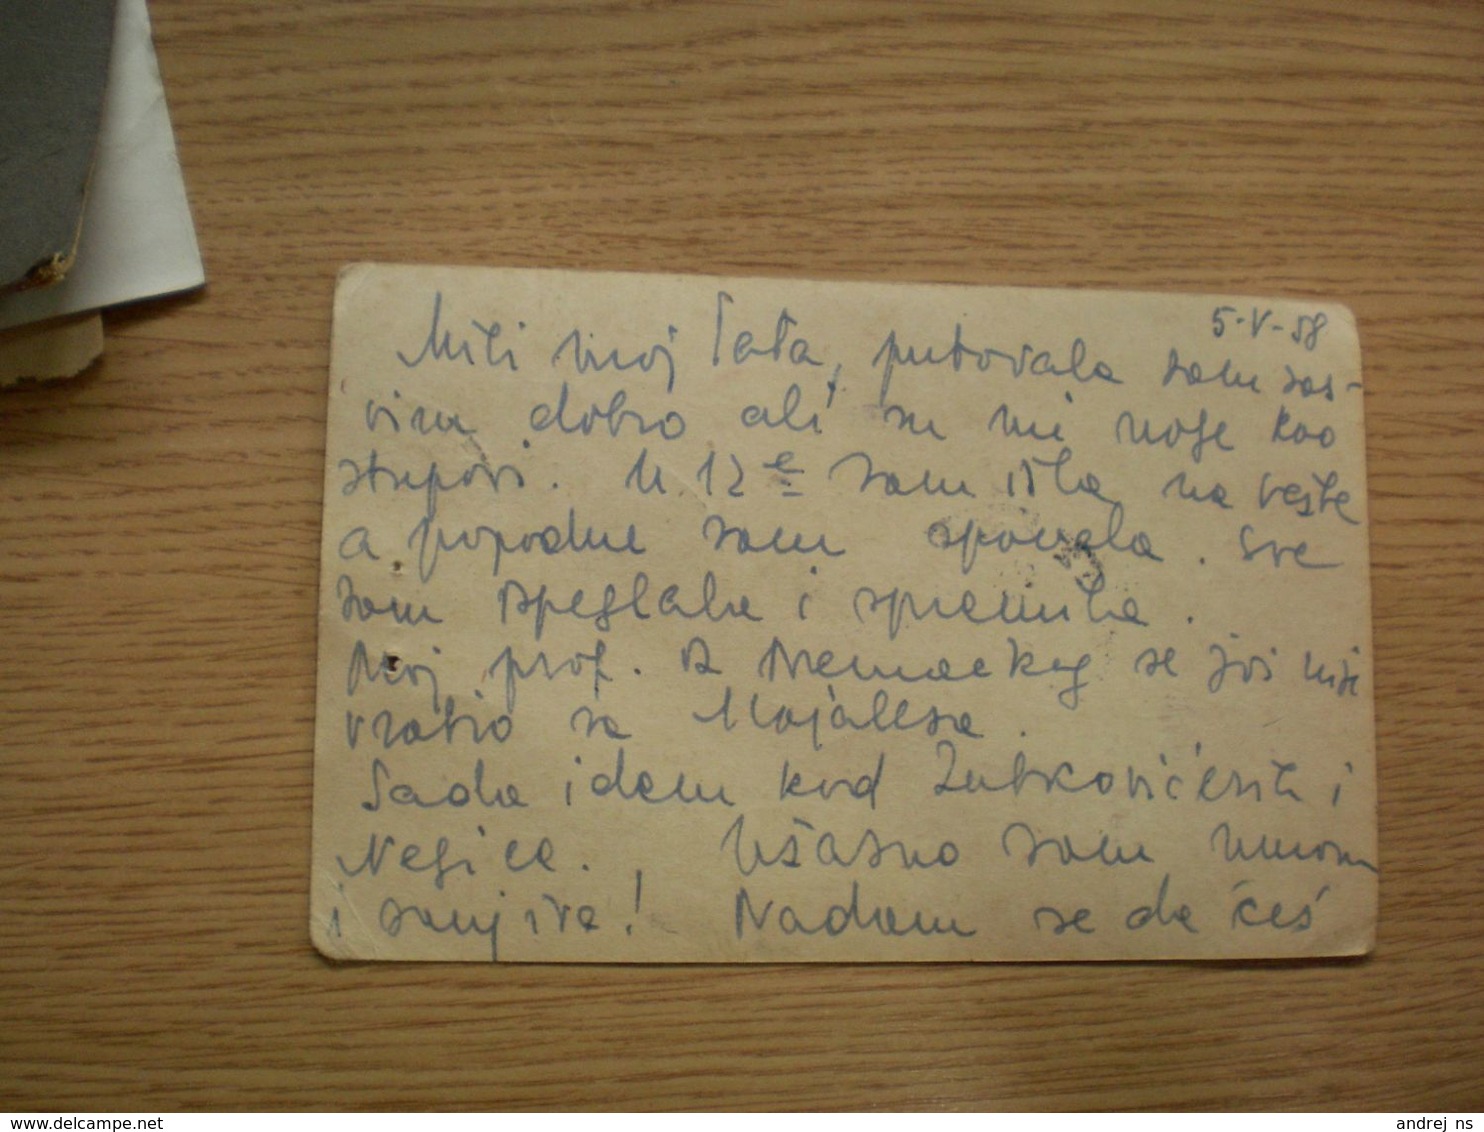 5-V-58
Mili moj Tata, putovala sam sas-
vim dobro ali su mi noge kao
stupovi. U 12 e sam išla na vežbe
a popodne sam spavala. Sve
sam ispeglala i spremila.
Moj prof. iz Nemačkog se još nije
vratio sa Majalesa.
Sada idem kod i
Negice. Užasno sam umorna
i sanjiva! Nadam se da ćeš
www.delcampe.net
andrej_ns